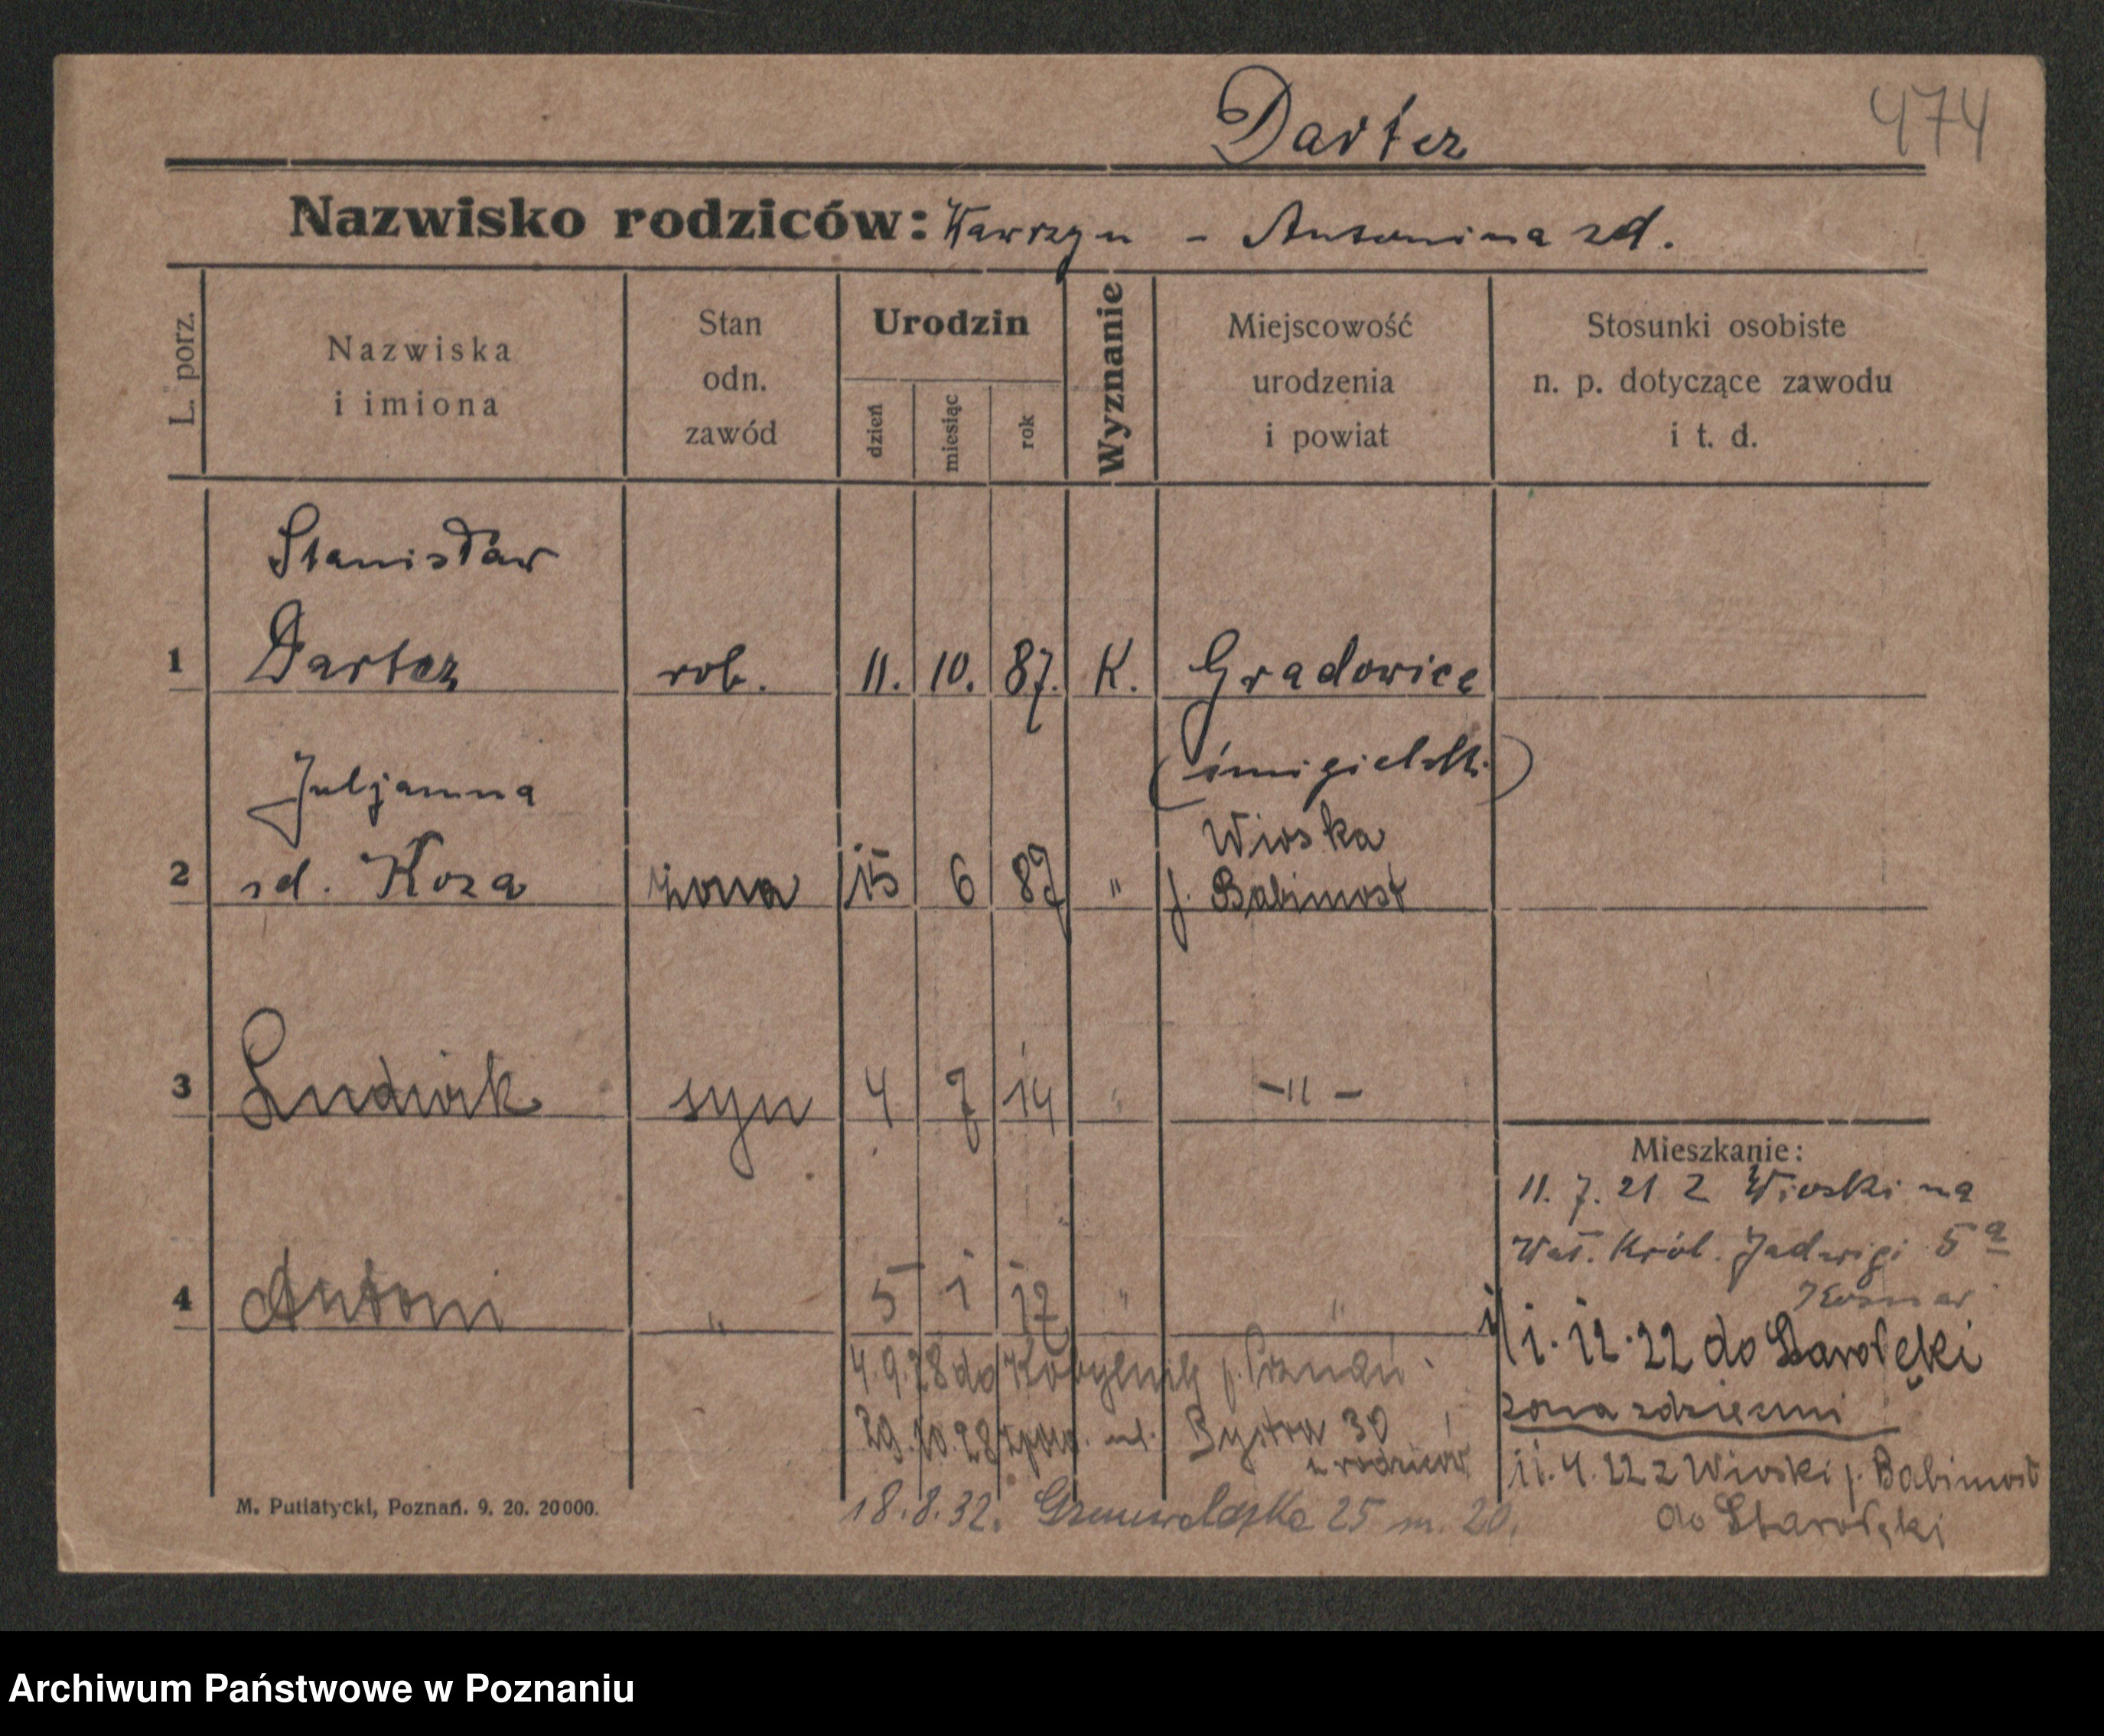 Darter
474
Nazwisko rodziców: Wawrzyn - Antonina zd.
L. porz.
Nazwiska
i imiona
Stan
odn.
zawód
Urodzin
dzień
miesiąc
rok
Wyznanie
Miejscowość
urodzenia
i powiat
Stosunki osobiste
n. p. dotyczące zawodu
i t. d.
Stanisław
1 Darter rob. 11. 10. 87. K. Gradowice
(śmigielski)
Juljanna
Wioska
2 zd. Koza żona 15 6 87 " p. Babimost
3 Ludwik syn 4 7 14 " -"-
4 Antoni " 5 1 17 " "
Mieszkanie:
11. 7. 21 z Wioski na
Wał. Król. Jadwigi 5a
1. 12. 22 do Starołęki
żona z dziećmi
11. 4. 22 z Wioski p. Babimost
do Starołęki
4.9.28 do Kobylnik p. Poznań
29.10.28 spow. ul. Bystra 30
u rodziców
18.8.32. Grunwaldzka 25 m. 20.
M. Putiatycki, Poznań. 9. 20. 20000.
Archiwum Państwowe w Poznaniu